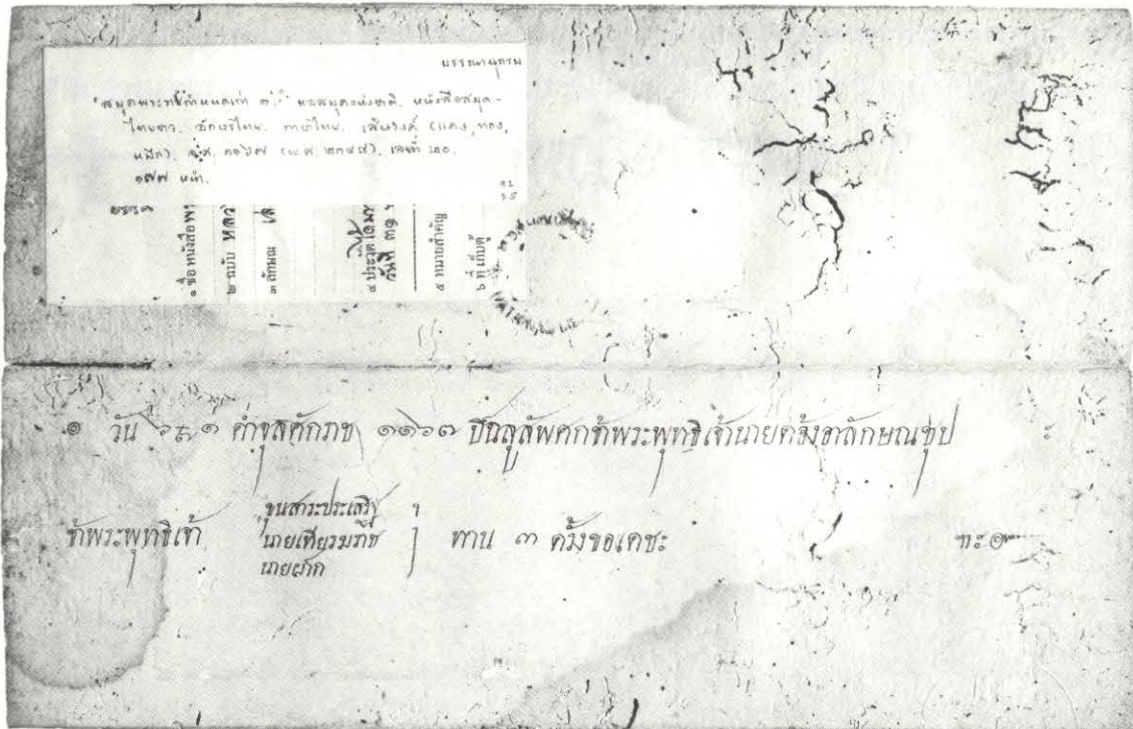 บรรณานุกรม
"สมุดพระทำหนดเก่า ๓." หอสมุดแห่งชาติ. หนังสือสมุด-
ไทยขาว. อักษรไทย. ภาษาไทย. เส้นรงค์ (แดง, ทอง,
หมึก). จ.ศ. ๑๑๖๗ (พ.ศ. ๒๓๔๘). เลขที่ ๒๐.
๑๗๗ หน้า.
๑ ชื่อหนังสือ
๒ ฉบับ หลว
๓ ลักษณ เส
๔ ประวัติ ได้มา
วันที่ ๓๑
๕ หมายสำคัญ
๖ ที่เก็บตู้
๏ วัน ค่ำจุลศักราช ๑๑๖๗ ปีฉลูสัพศกข้าพระพุทธิเจ้านายคล้ำอาลักษณชุป
ข้าพระพุทธิเจ้า
ขุนสาระประเสริฐ
นายเทียรฆราช
นายผัก
ทาน ๓ ครั้งขอเดชะ